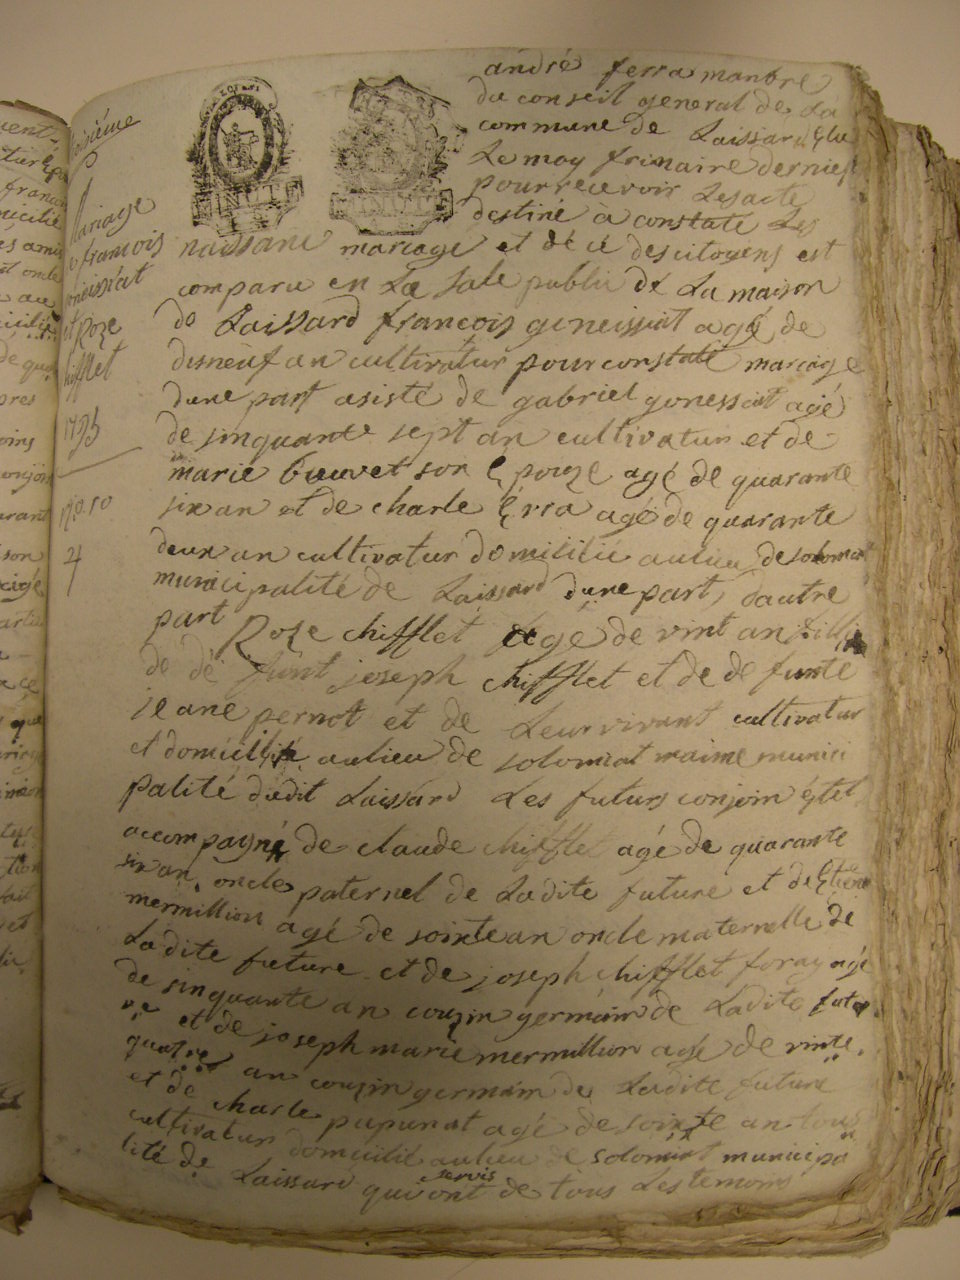 andré ferra manbre
du conseil general de La
commune de Laissard Elu
Le moy frimaire dernier
pour recevoir Les acte
destiné à constaté Les
naissane mariage et décé des citoyens est
comparu en La Sale public dé La maison
do Laissard françois goneissiat agé de
disneuf an cultivatur pour constaté mariage
dune part asisté de gabriel gonessiat agé
de sinquante sept an cultivatur et de
marie bouvet son Epoize agé de quarante
six an et de charle Erra agé de quarante
deux an cultivatur domisilié aulieu de solomiat
municipalité de Laissard dune part, dautre
part Roze chifflet agé de vint an fille
de dé funt joseph chifflet et de de funte
jeane pernot et de Leur vivant cultivatur
et domicillié aulieu de solomiat maime munici
palité dudit Laissard Les futurs conjoin
accompagné de claude chifflet agé de quarante
six an, oncle paternel de Ladite future et de
mermillion agé de sointe an oncle maternelle de
Ladite future et de joseph chifflet foray agé
de sinquante an couzin germain de Ladite futu
re et de joseph marie mermillion agé de vinte
quatre an couzin germain de Ladite future
et de charle papunat agé de sointe an tous
cultivatur domicilié aulieu de solomiat municipa
lité de Laissard qui ont servis de tous Les temoins
Mariage
françois
goneissiat
et Roze
chifflet
1793
4
MINUTE
MINUTE